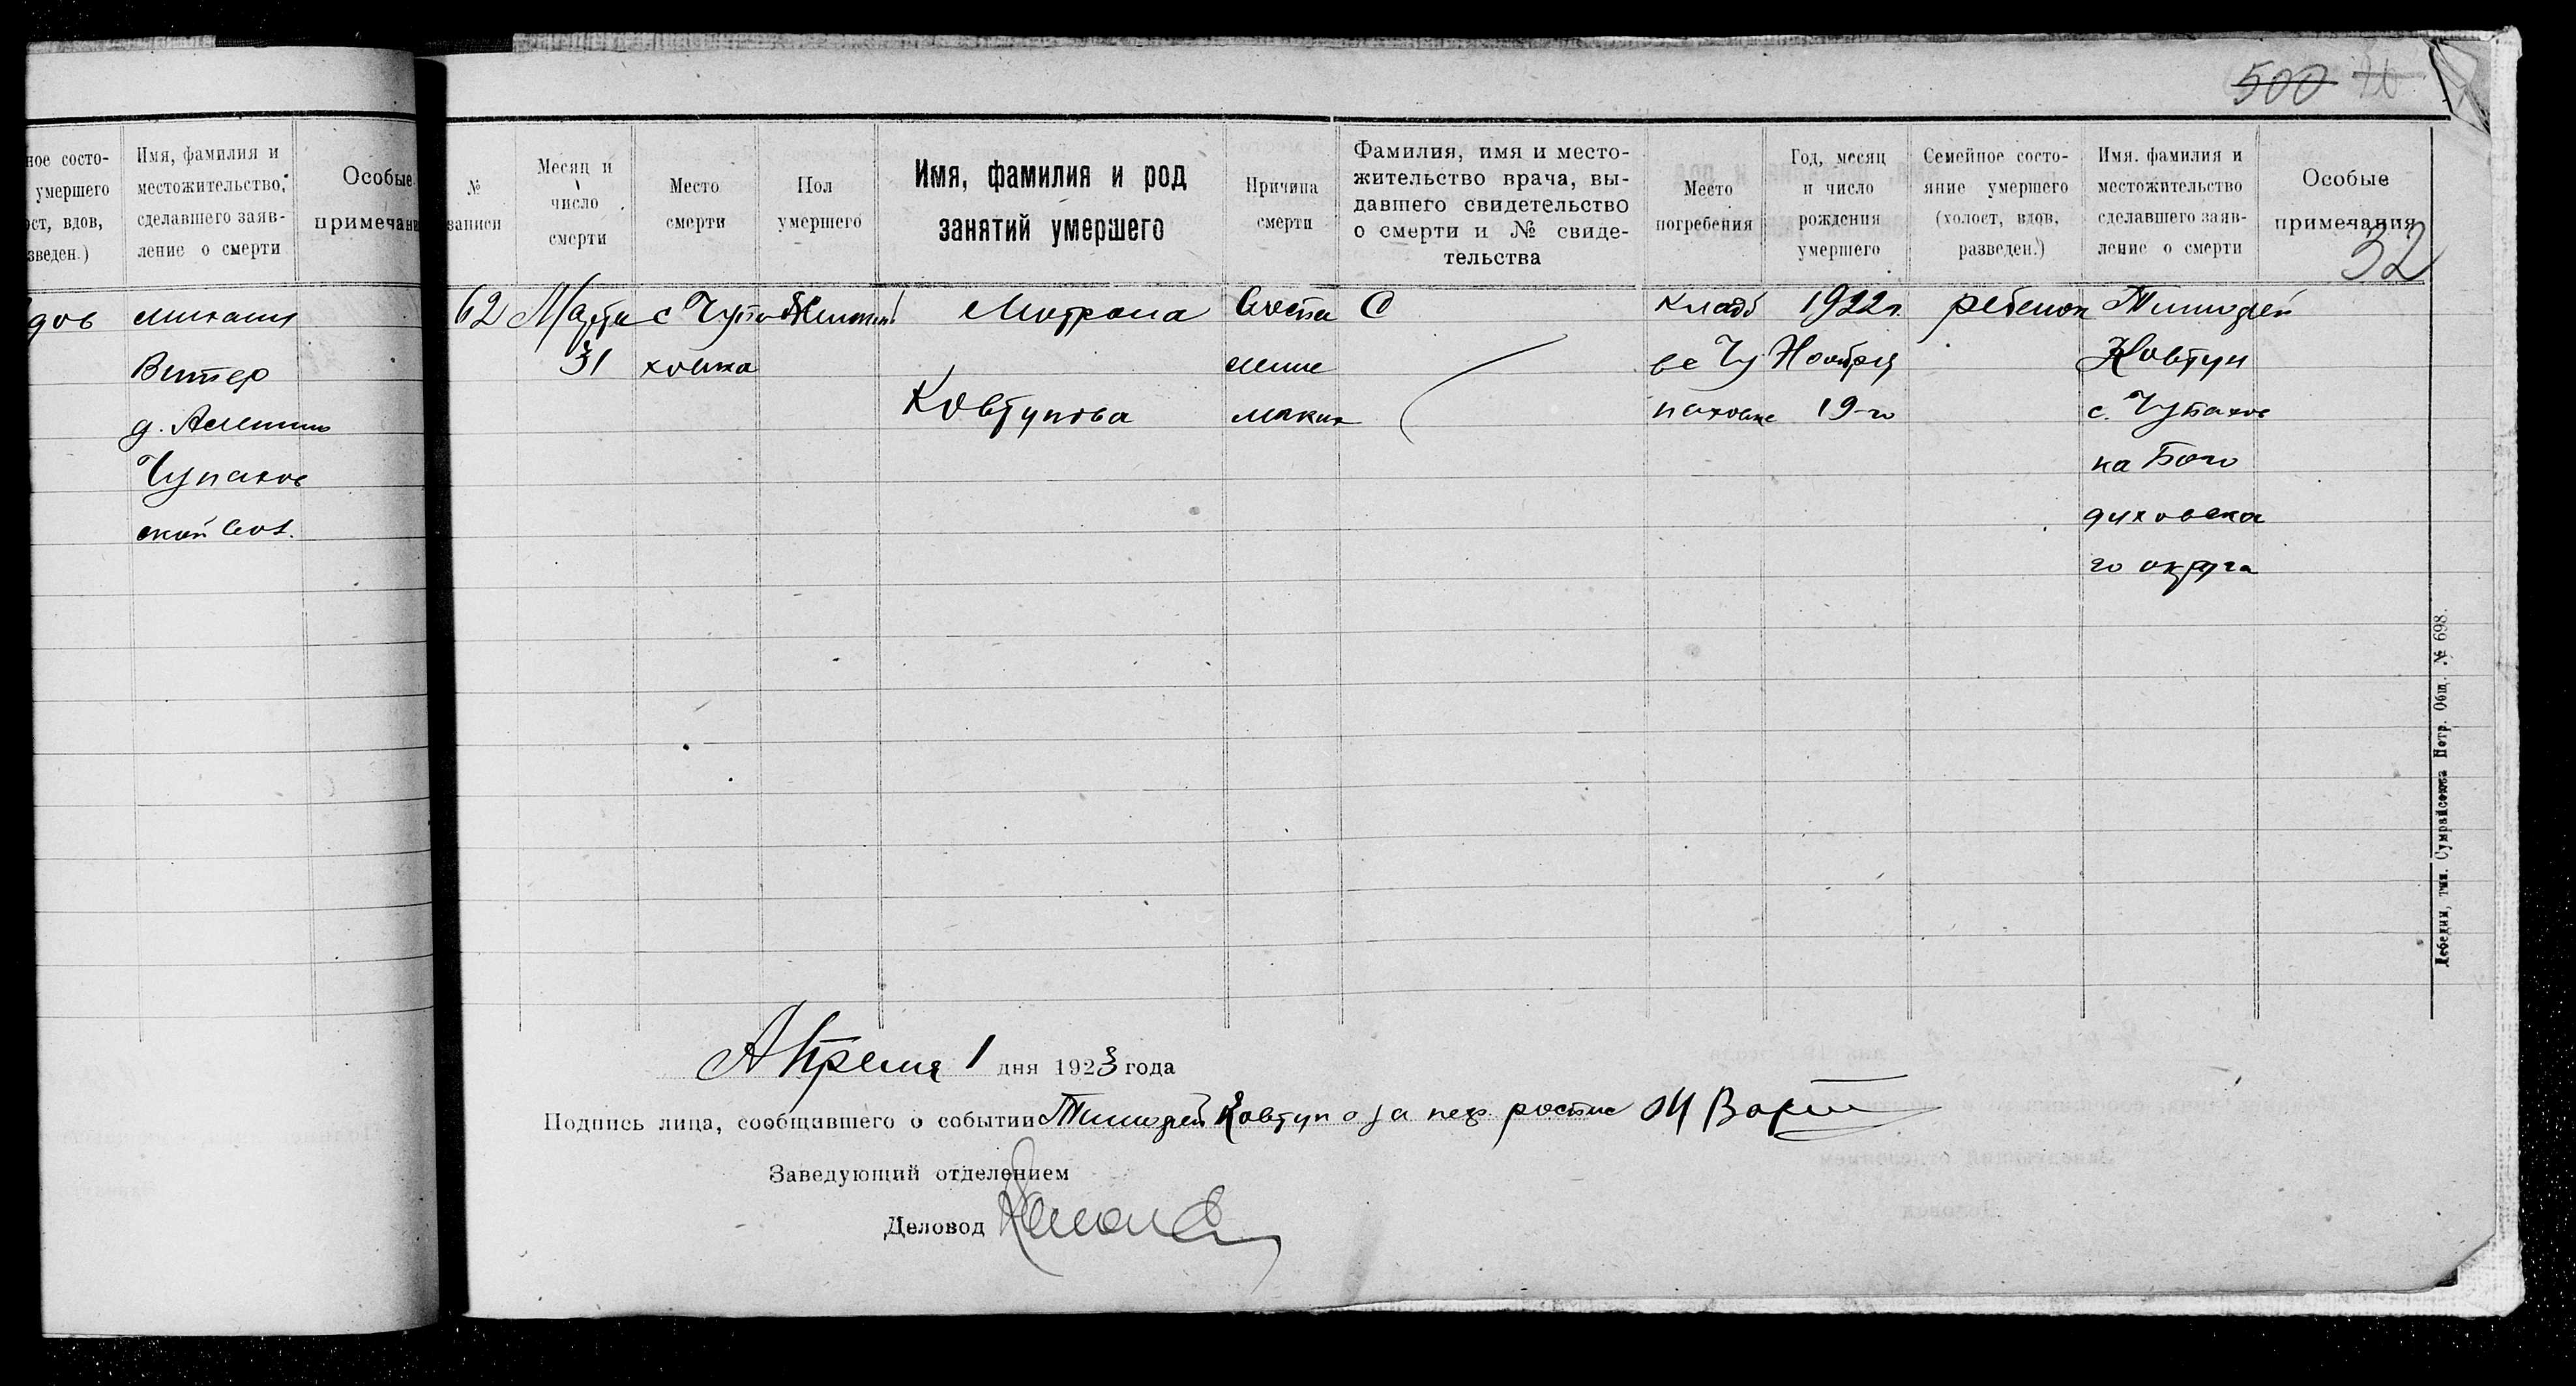 500 76
ное состо-
умершего
ост, вдов,
зведен.)
Имя, фамилия и
местожительство,
сделавшего заяв-
ление о смерти
Особые
примечани
дов
михаил
Витер
Чупахов
ской
№
записи
Месяц и
число
смерти
Место
смерти
Пол
умершего
Имя, фамилия и род
занятий умершего
Причина
смерти
Фамилия, имя и место-
жительство врача, вы-
давшего свидетельство
о смерти и № свиде-
тельства
Место
погребения
Год, месяц
и число
рождения
умершего
Семейное состо-
яние умершего
(холост, вдов,
разведен.)
Имя. фамилия и
местожительство
сделавшего заяв-
ление о смерти
Особые
примечания
32
62
Марта
31
с Чупа
ховка
Женский
Мотрона
Ковтунова
Воспа
ление
мляких
кладб
ве Чу
паховке
1922 г.
Ноября
19-го
ребенок
Тимофей
Ковтун
с. Чупахов
ка Бого
духовска
го округа
Апреля 1 дня 1923 года
Подпись лица, сообщившего о событии Тимофей Ковтун а за нег. роспис
Заведующий отделением
Деловод
Лебедин, тип. Сумрайсоюза Потр. Общ. № 698.